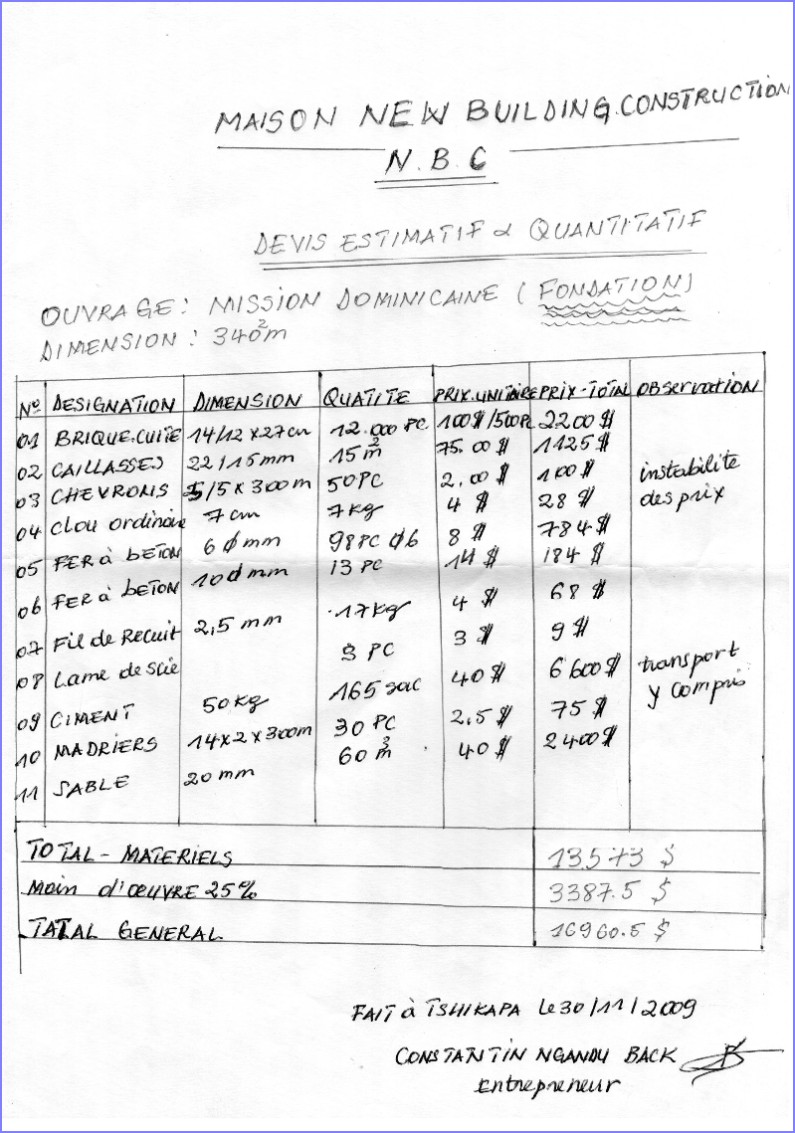 MAISON NEW BUILDING.CONSTRUCTION
N.B.C
DEVIS ESTIMATIF & QUANTITATIF
OUVRAGE: MISSION DOMINICAINE (FONDATION)
DIMENSION: 340²m
N° DESIGNATION DIMENSION QUATITE PRIX.UNITAIRE PRIX-TOTAL OBSERVATION
01 BRIQUE.CUITE 14/12 x 27cm 12.000 PC 100$/500PC 2200$
02 CAILLASSES 22/15mm 15m² 75.00$ 1125$
03 CHEVRONS 5/5 x 300m 50PC 2.00$ 100$ instabilite
04 clou ordinaire 7 cm 7kg 4$ 28$ des prix
05 FER à bETON 6 ϕ mm 98PC ϕ6 8$ 784$
06 FER à bETON 10 ϕ mm 13 PC 14$ 184$
07 Fil de Recuit 2,5 mm 17kg 4$ 68$
08 Lame de scie 3 PC 3$ 9$
09 CIMENT 50kg 165 sac 40$ 6600$ transport
10 MADRIERS 14x2x300m 30 PC 2.5$ 75$ y compris
11 SABLE 20mm 60m³ 40$ 2400$
TOTAL-MATERIELS 13573 $
Main d'œUVRE 25% 3387.5 $
TATAL GENERAL 16960.5 $
FAIT à TSHIKAPA le 30/11/2009
CONSTANTIN NGANDU BACK
Entrepreneur